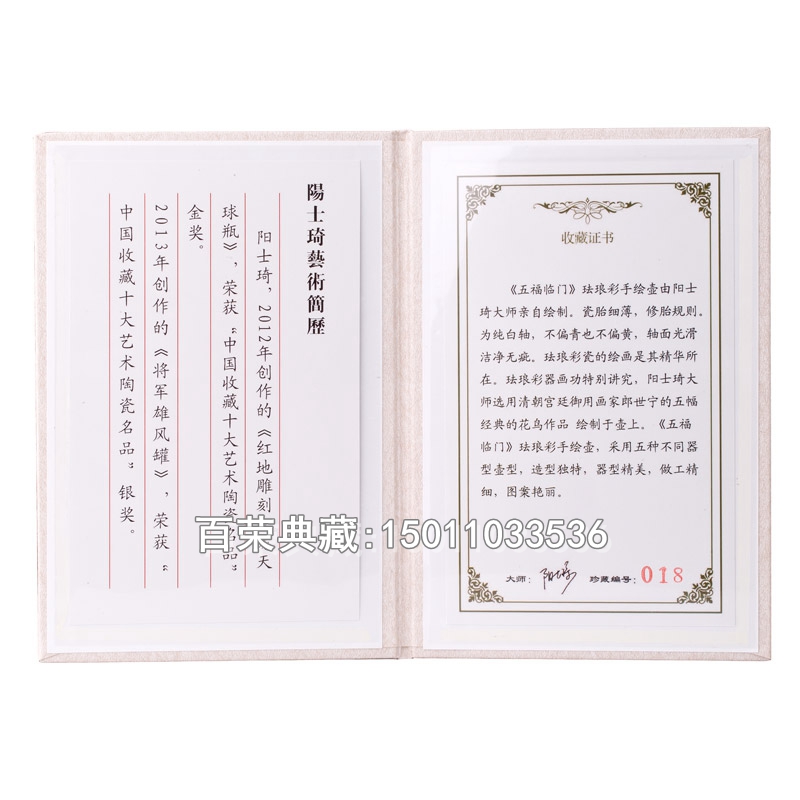 陽士琦藝術簡歷
阳士琦，2012年创作的《红地雕刻天
球瓶》，荣获“中国收藏十大艺术陶瓷名品”
金奖。
2013年创作的《将军雄风罐》，荣获“
中国收藏十大艺术陶瓷名品”银奖。
收藏证书
《五福临门》珐琅彩手绘壶由阳士
琦大师亲自绘制。瓷胎细薄，修胎规则。
为纯白轴，不偏青也不偏黄，轴面光滑
洁净无疵。珐琅彩瓷的绘画是其精华所
在。珐琅彩器画功特别讲究，阳士琦大
师选用清朝宫廷御用画家郎世宁的五幅
经典的花鸟作品 绘制于壶上。《五福
临门》珐琅彩手绘壶，采用五种不同器
型壶型，造型独特，器型精美，做工精
细，图案艳丽。
大师：阳士琦 珍藏编号：018
百荣典藏:15011033536